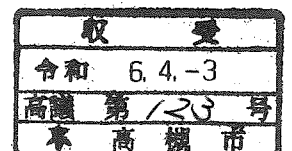 収受
令和 6.4.-3
高議 第123号
高槻市